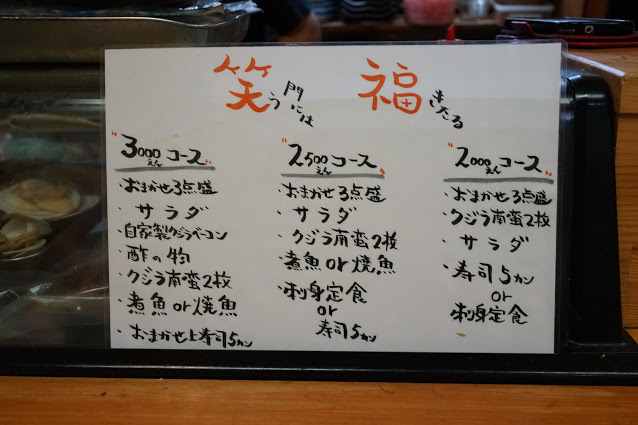 笑う門には 福きたる
3000えんコース
・おまかせ3点盛
・サラダ
・自家製クジラベーコン
・酢の物
・クジラ南蛮2枚
・煮魚or焼魚
・おまかせ上寿司5カン
2500えんコース
・おまかせ3点盛
・サラダ
・クジラ南蛮2枚
・煮魚or焼魚
・刺身定食
or
寿司5カン
2000えんコース
・おまかせ3点盛
・クジラ南蛮2枚
・サラダ
・寿司5カン
or
刺身定食